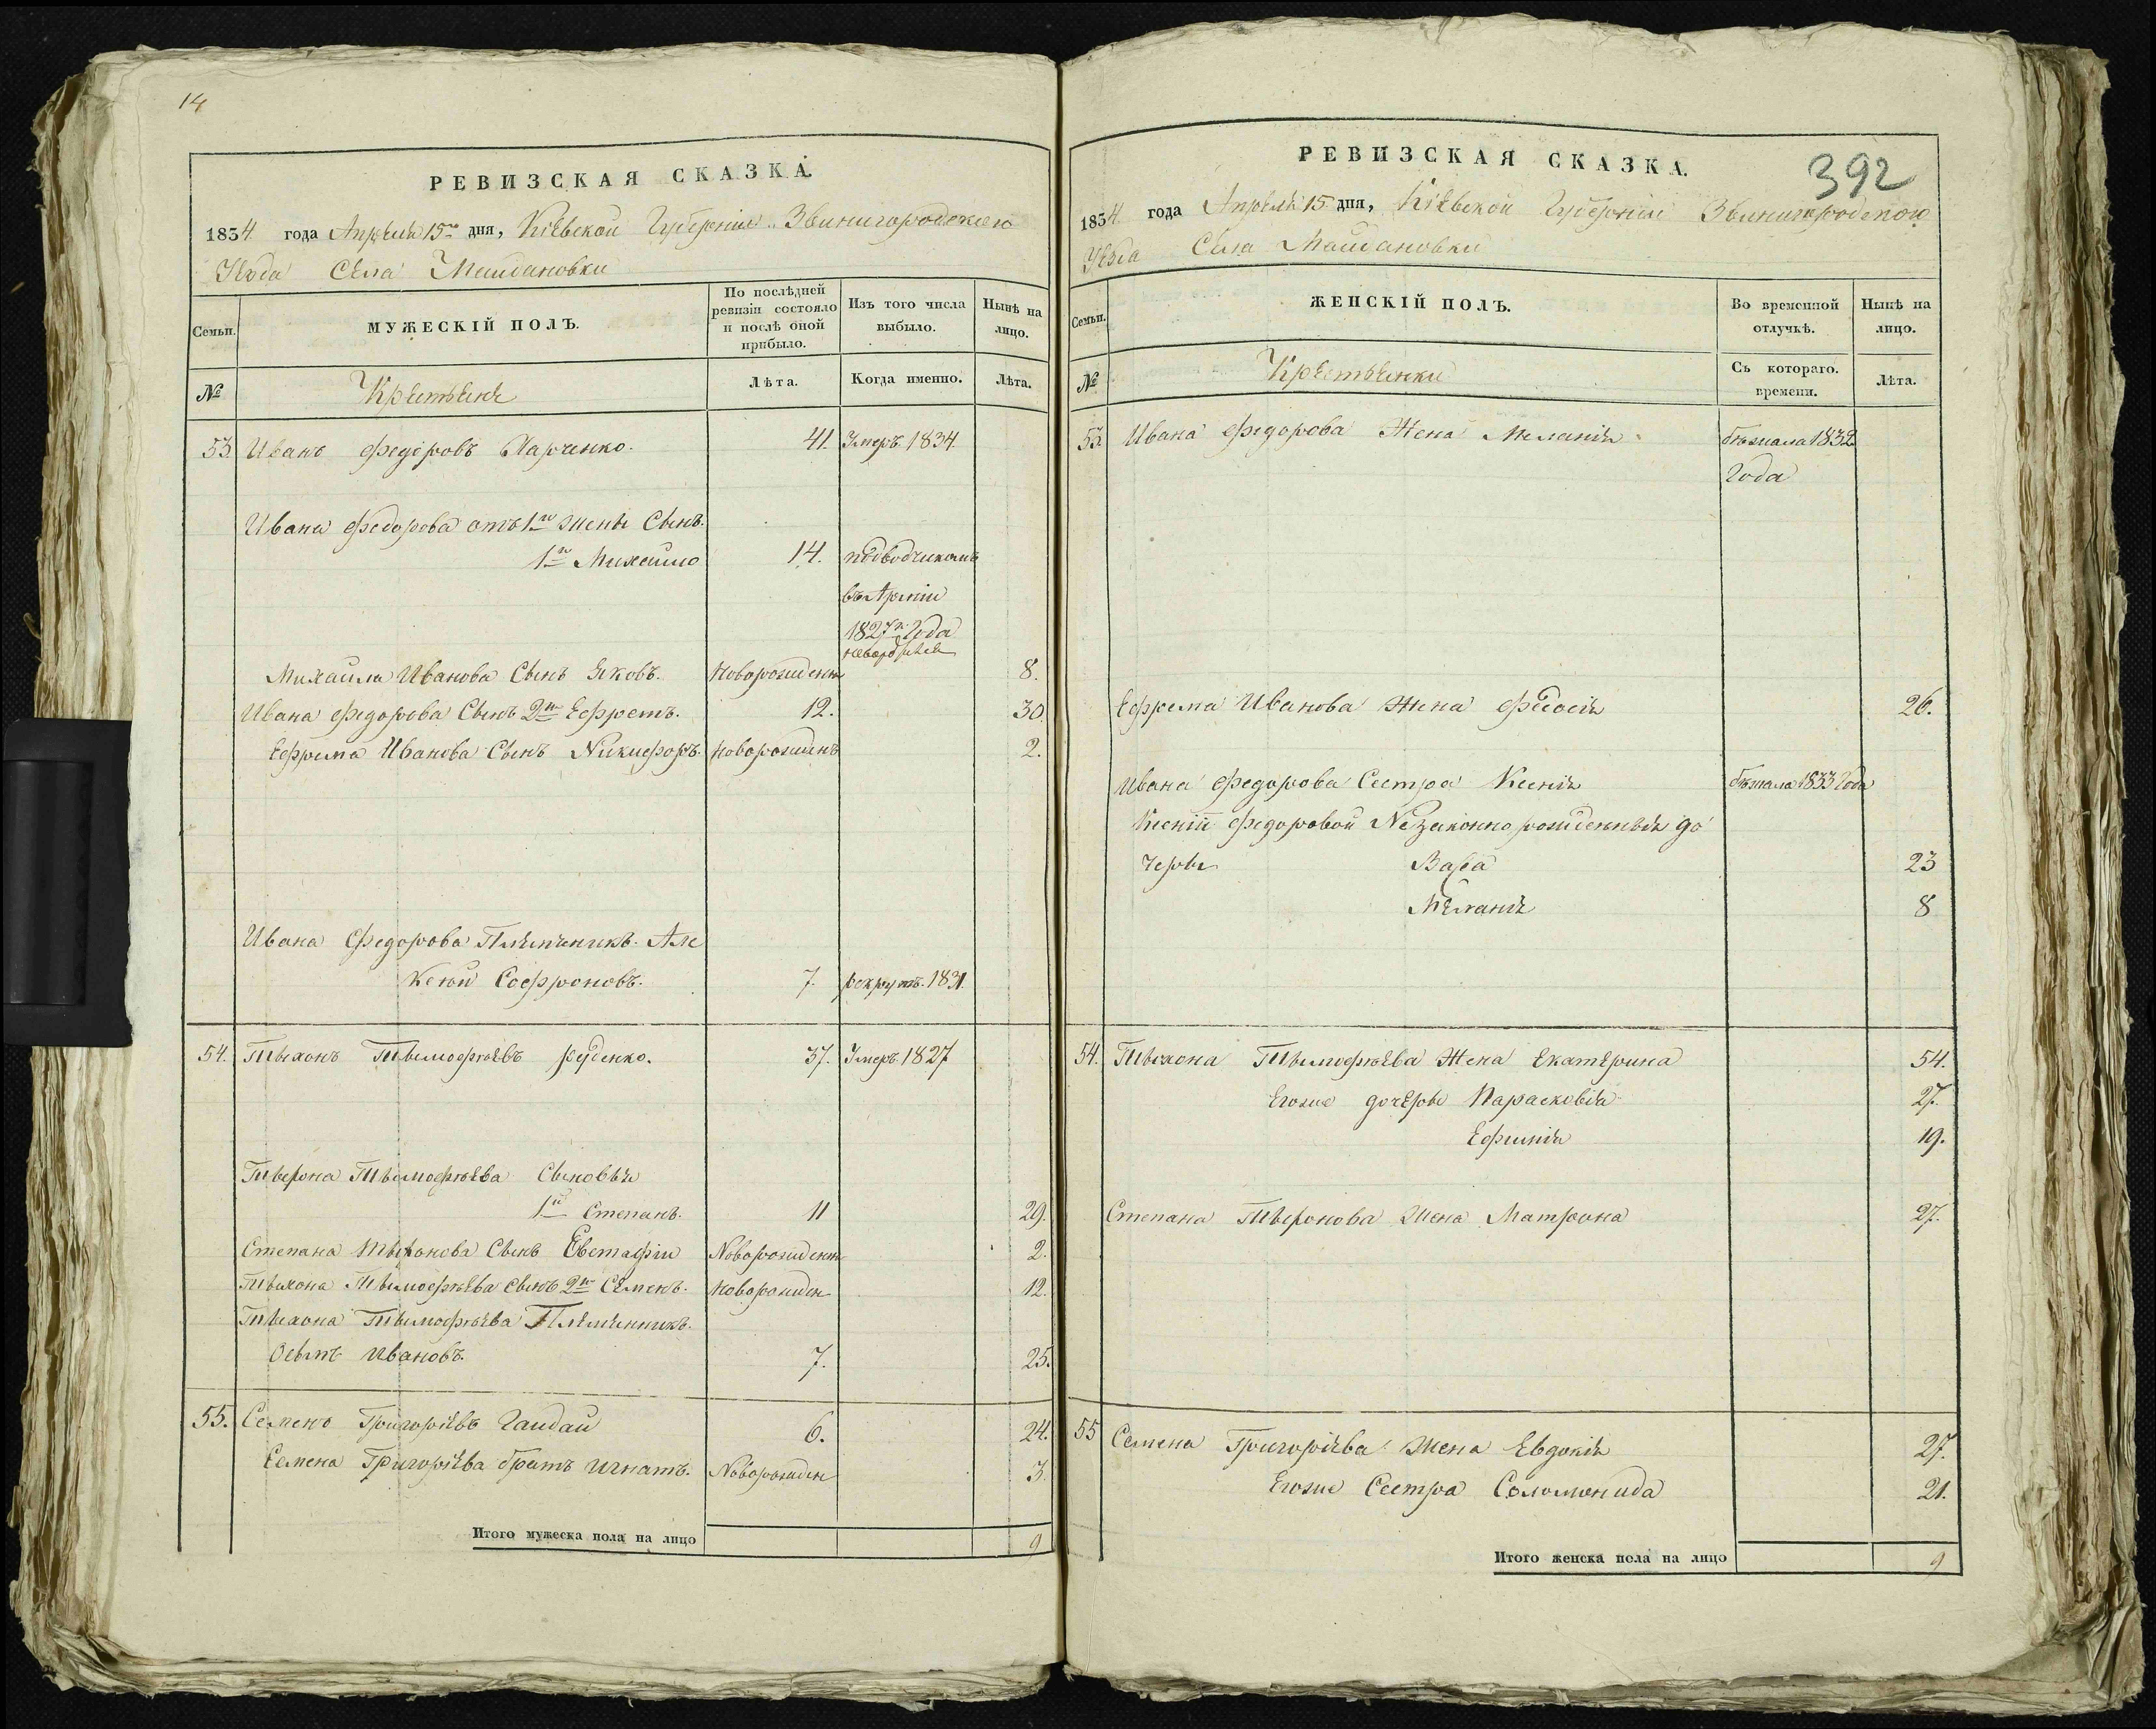 14
РЕВИЗСКАЯ СКАЗКА.
1834 года Апреля 15го дня, Кіевской Губерніи Звенигородского
Уезда Села Майдановки
Семьи.
МУЖЕСКІЙ ПОЛЪ.
По послѣдней
ревизіи состояло
и послѣ оной
прибыло.
Изъ того числа
выбыло.
Нынѣ на
лицо.
№
Крестьяне
Лѣта.
Когда именно.
Лѣта.
53. Иванъ Федоровъ Харченко. 41. Умеръ 1834.
Ивана Федорова отъ 1й жены Сынъ.
1й Михайло 14. подводчикомъ
въ Арміи
1827го Года
Михайла Иванова Сынъ Яковъ. Новорожденн 8.
Ивана Федорова Сынъ 2й Ефремъ. 12. 30.
Ефрема Иванова Сынъ Никифоръ. новорожденъ 2.
Ивана Федорова Племянникъ. Але
ксей Софроновъ. 7. рекрутъ. 1831.
54. Тыхонъ Тымофѣевъ Руденко. 37. Умеръ 1827
Тыхона Тымофѣева Сыновья
1й Степанъ. 11 29.
Степана Тыхонова Сынъ Евстафіи Новорожденн 2.
Тыхона Тымофѣева сынъ 2й Семенъ. Новорожден 12.
Тыхона Тымофѣева Племянникъ.
Осыпъ Ивановъ. 7. 25.
55. Семенъ Григорьевъ Гайдай 6. 24.
Семена Григорьева братъ Игнатъ. Новорожден 3.
Итого мужеска пола на лицо 9
392
РЕВИЗСКАЯ СКАЗКА.
1834 года Апреля 15 дня, Кіевской Губерніи Звенигородского
Уезда Села Майдановки
Семьи.
ЖЕНСКІЙ ПОЛЪ.
Во временной
отлучкѣ.
Нынѣ на
лицо.
№
Крестьянки
Съ котораго.
времени.
Лѣта.
53. Ивана Федорова Жена Меланія бѣжала 1832
Года
Ефрема Иванова Жена Феосія 26.
Ивана Федорова Сестра Ксенія бѣжала 1833 Года
Ксеніи Федоровой Незаконно рожденныя до
черы Вара 23
Меланія 8
54. Тыхона Тымофѣева Жена Екатерина 54.
Егоже дочеры Парасковія 27.
Ефимія 19.
Степана Тыхонова Жена Матрона 27.
55 Семена Григорьева Жена Евдокія 27.
Егоже Сестра Соломонида 21.
Итого женска пола на лицо 9